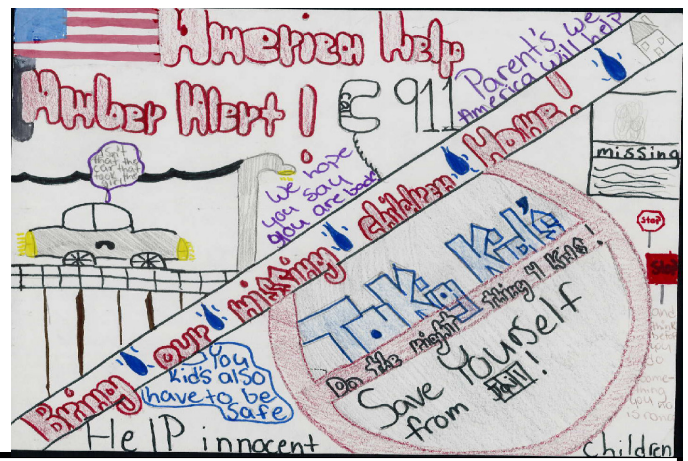 America Help
Amber Alert!
Call
911
Parent's we
America will help
isn't
that the
car that
took the
girl!!!
We hope
you say
you are back
Bring our missing children Home!
missing
Stop
Stop
Taking Kid's
Do the right thing 4 Kids!
Save Yourself
from Jail!
You
Kid's also
have to be
Safe
and
think
before
you
do
some-
thing
you no
is rong
Help innocent
children